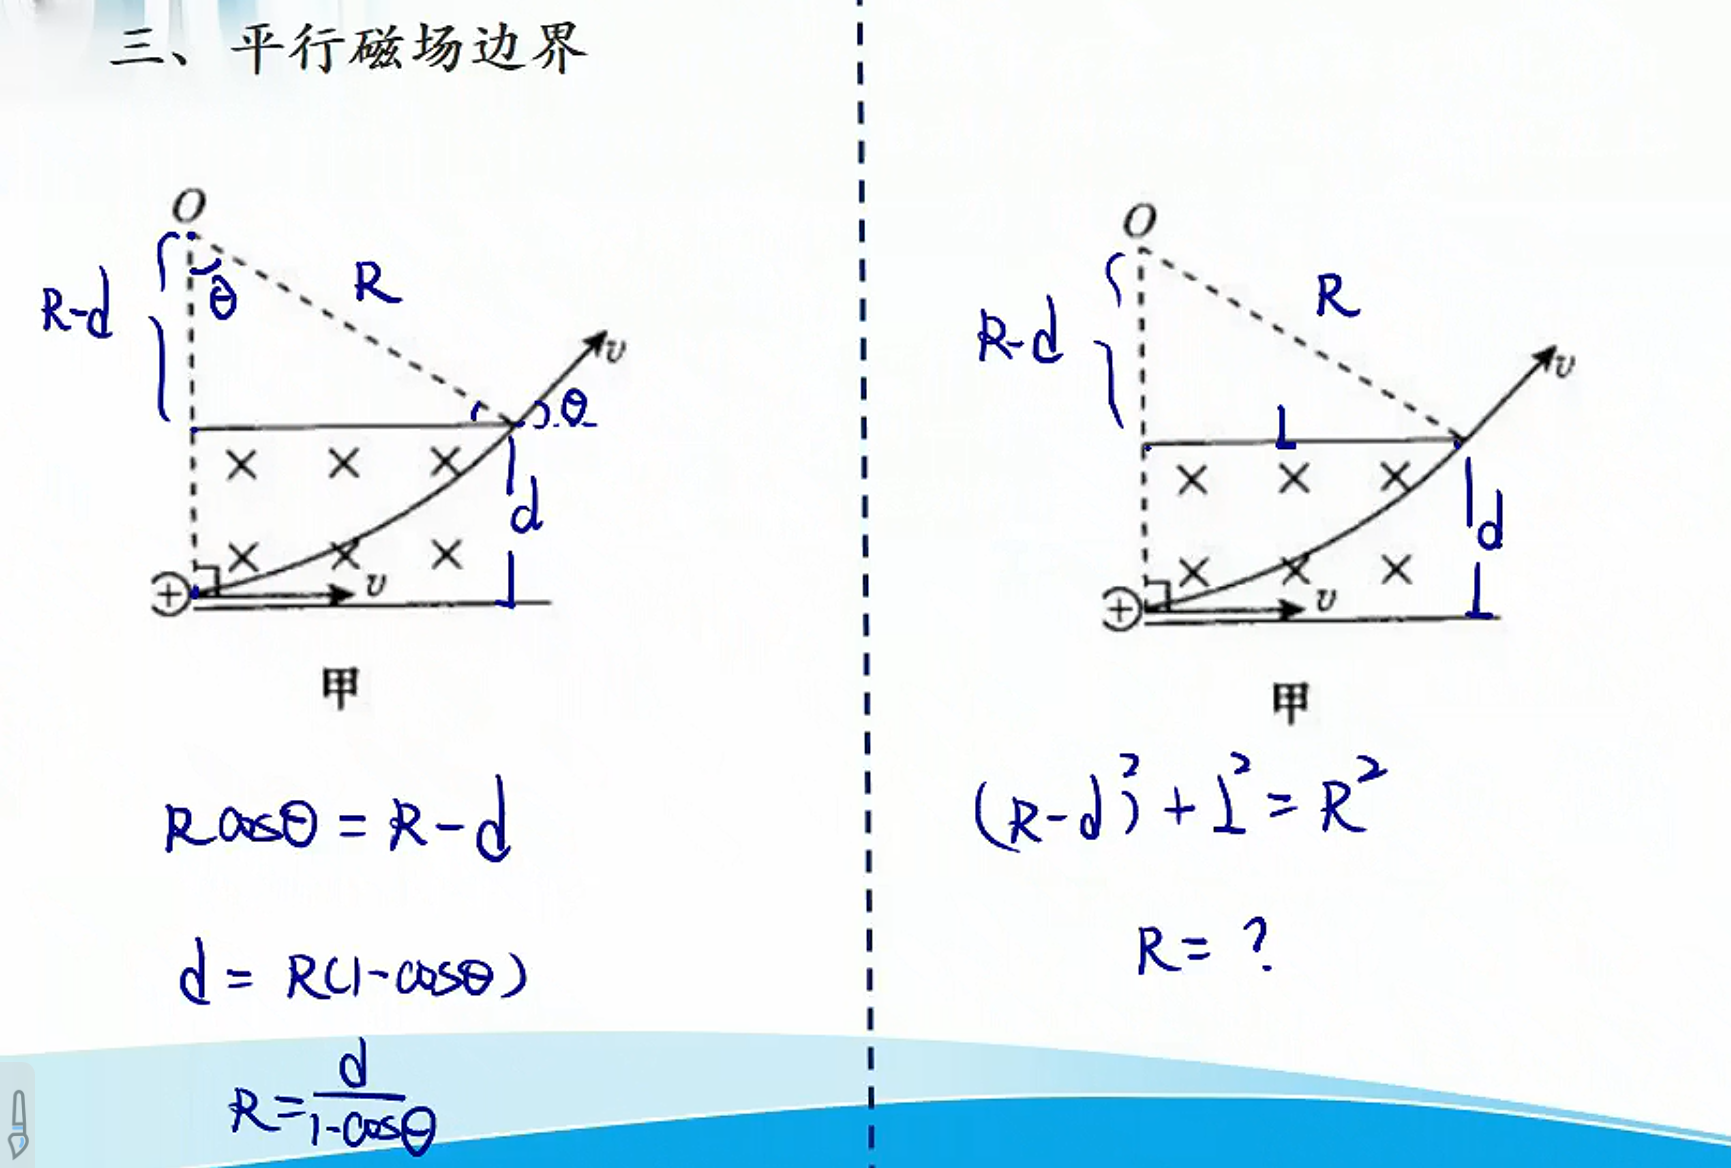 三、平行磁场边界
O
θ
R
R-d
v
θ
d
v
甲
Rcosθ = R-d
d = R(1-cosθ)
R = d/(1-cosθ)
O
R
R-d
v
L
d
v
甲
(R-d)² + L² = R²
R = ?